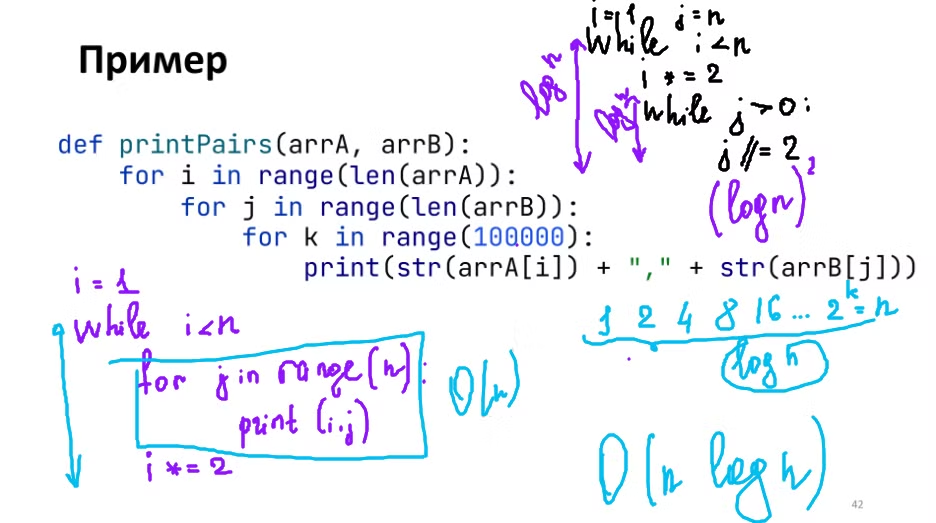 Пример
i=1 j=n
While i<n
i *= 2
while j>0:
j //= 2
log n
log n
(log n)²
def printPairs(arrA, arrB):
for i in range(len(arrA)):
for j in range(len(arrB)):
for k in range(100000):
print(str(arrA[i]) + "," + str(arrB[j]))
i = 1
while i<n
for j in range(n):
print (i.j)
i *= 2
O(n)
1 2 4 8 16 ... 2^k = n
log n
O(n log n)
42